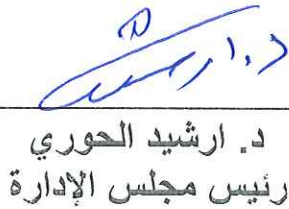 د. ارشيد الحوري
رئيس مجلس الإدارة